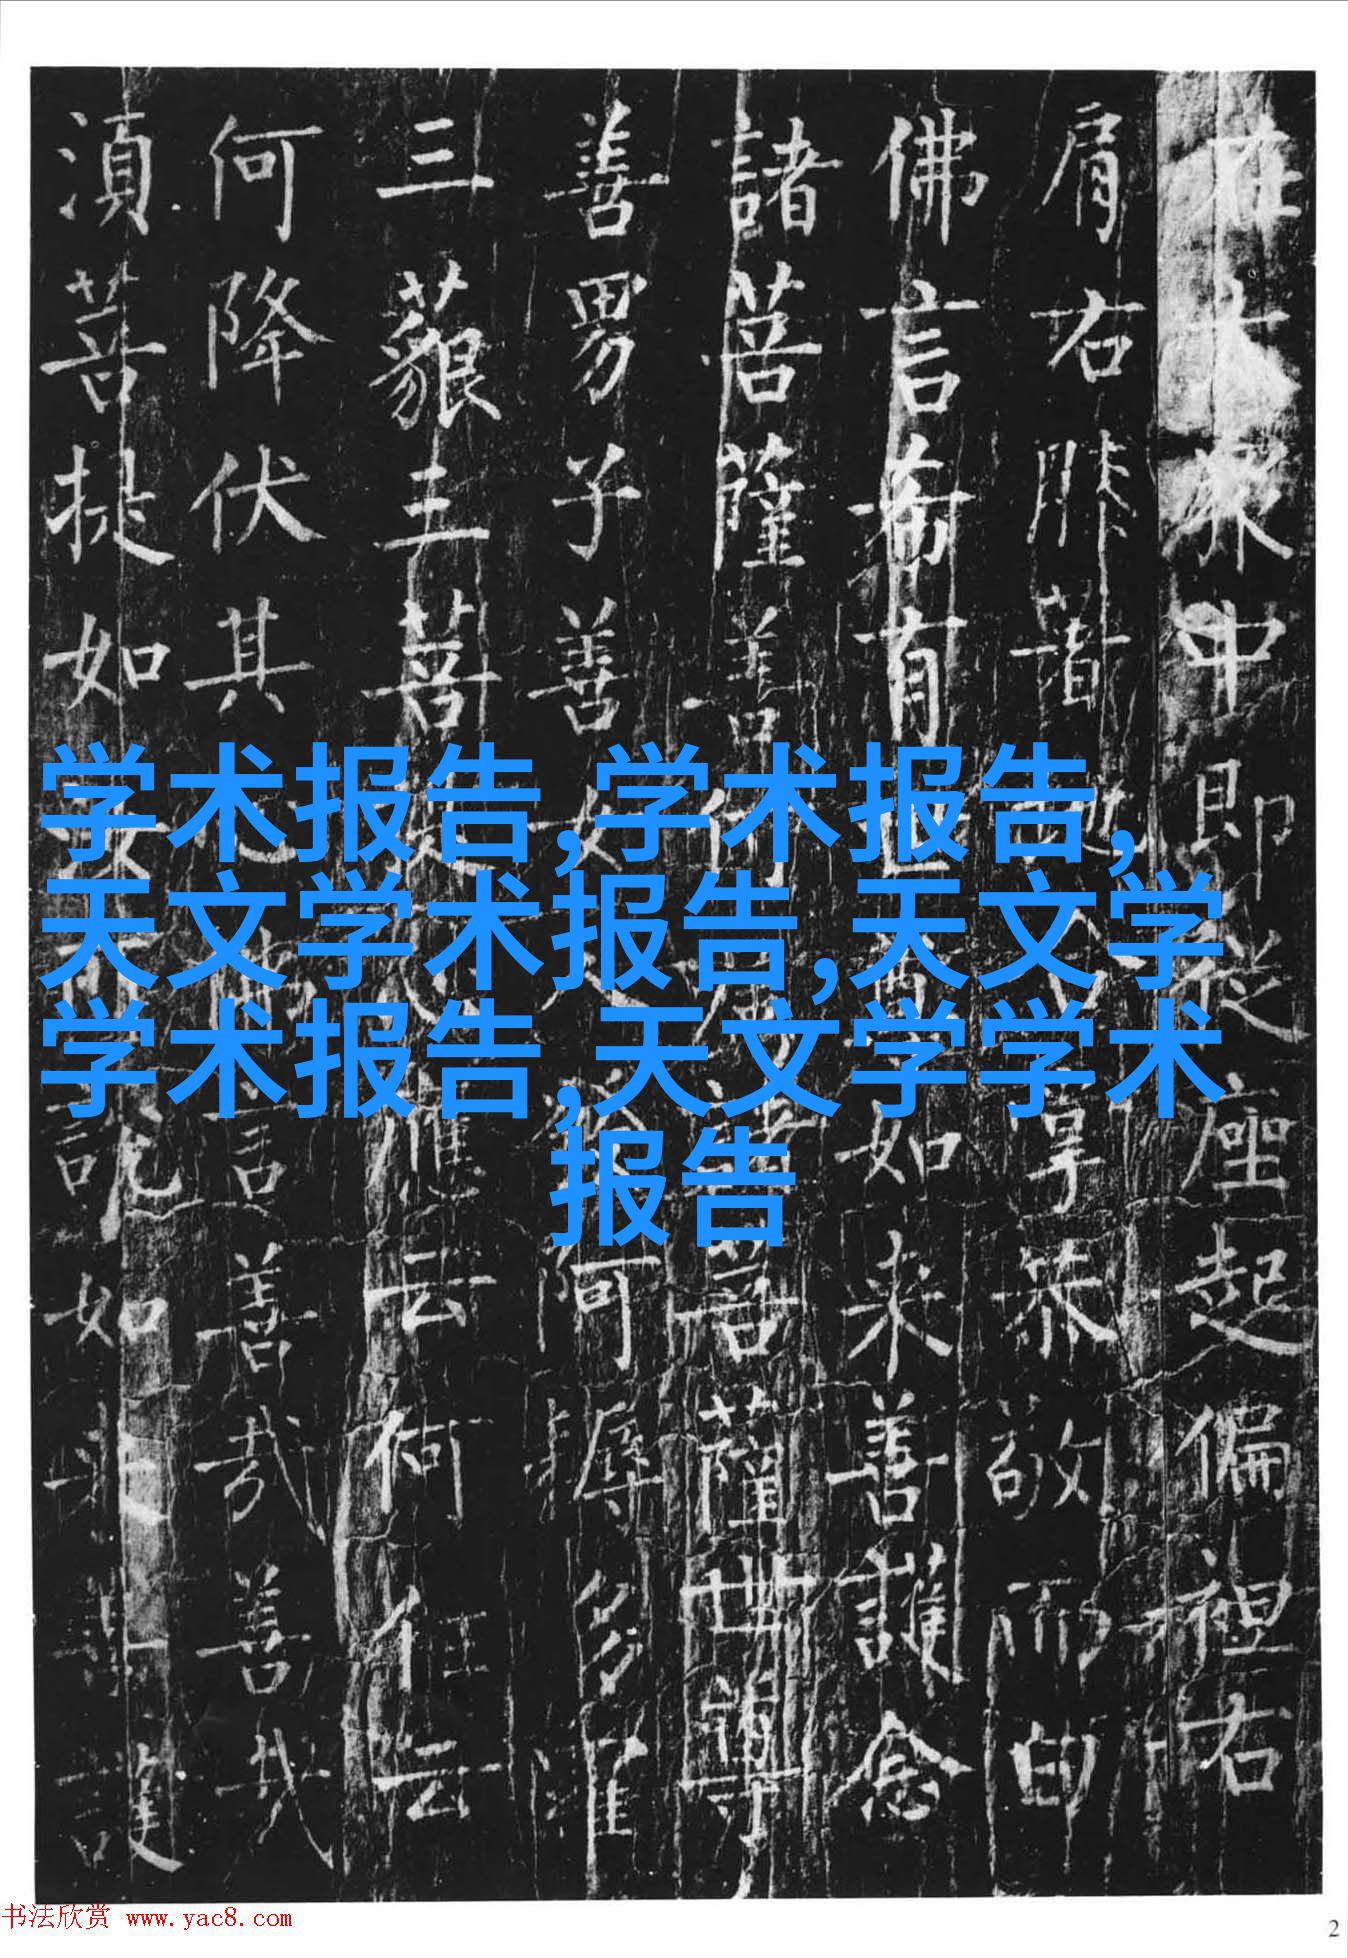 在大眾中即從座起偏袒右
肩右膝著地合掌恭敬而白
佛言希有世尊如来善護念
諸菩薩善付囑諸菩薩世尊
善男子善女人發阿耨多羅
三藐三菩提心應云何住云
何降伏其心佛言善哉善哉
湏菩提如汝所說如来善護
学术报告,学术报告,
天文学术报告,天文学
学术报告,天文学学术
报告
书法欣赏 www.yac8.com
2